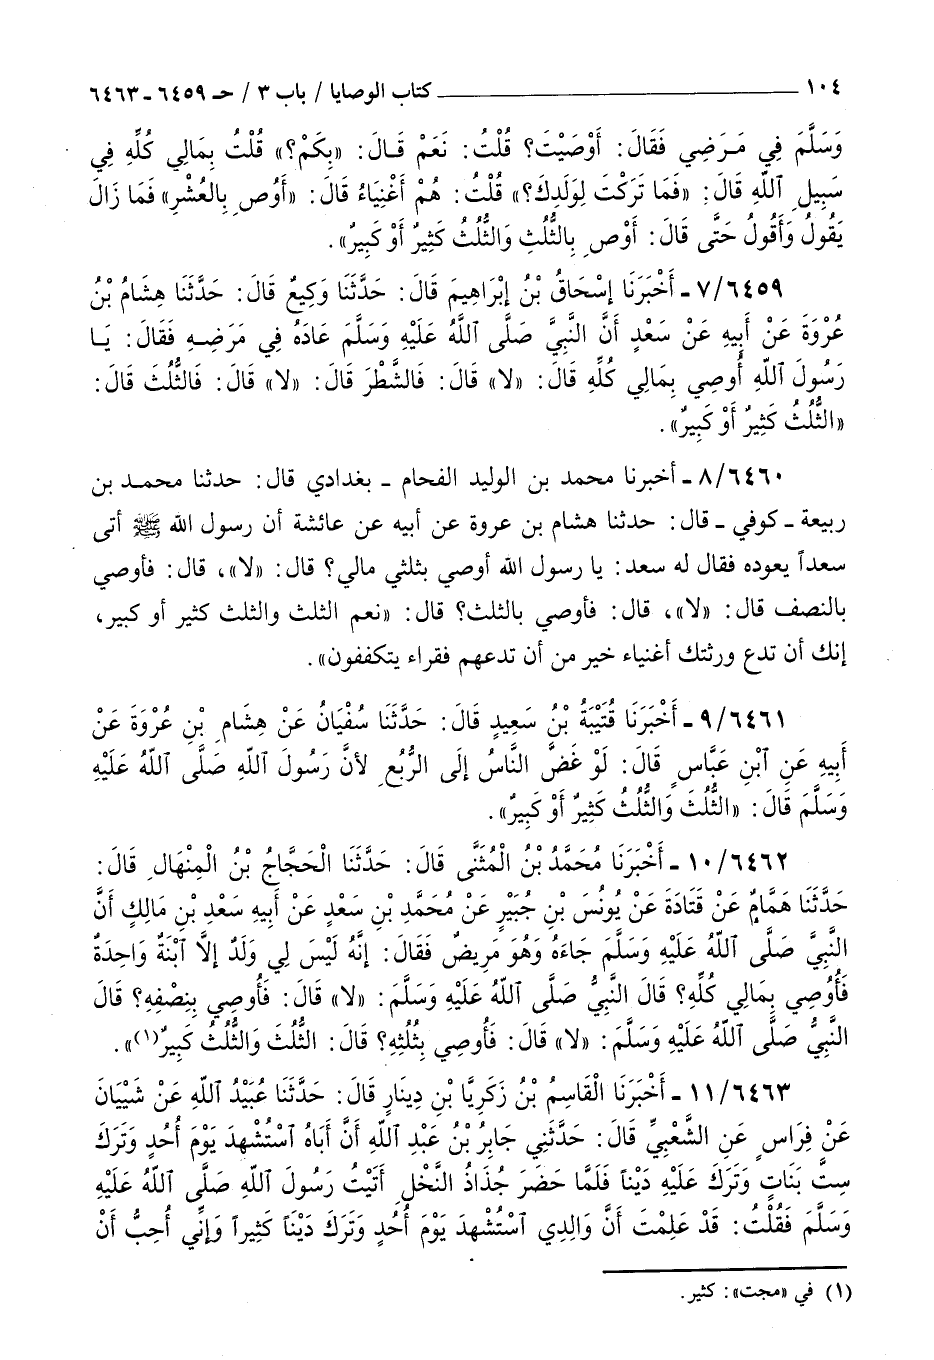 ١٠٤ كتاب الوصايا / باب ٣ / حـ ٦٤٥٩ - ٦٤٦٣
وَسَلَّمَ فِي مَرَضِي فَقَالَ: أَوْصَيْتَ؟ قُلْتُ: نَعَمْ قَالَ: «بِكَمْ؟» قُلْتُ بِمَالِي كُلِّهِ فِي
سَبِيلِ ٱللَّهِ قَالَ: «فَمَا تَرَكْتَ لِوَلَدِكَ؟» قُلْتُ: هُمْ أَغْنِيَاءُ قَالَ: «أَوْصِ بِالعُشْرِ» فَمَا زَالَ
يَقُولُ وَأَقُولُ حَتَّى قَالَ: أَوْصِ بِالثُّلُثِ وَالثُّلُثُ كَثِيرٌ أَوْ كَبِيرٌ».
٧/٦٤٥٩ - أَخْبَرَنَا إِسْحَاقُ بْنُ إِبْرَاهِيمَ قَالَ: حَدَّثَنَا وَكِيعٌ قَالَ: حَدَّثَنَا هِشَامُ بْنُ
عُرْوَةَ عَنْ أَبِيهِ عَنْ سَعْدٍ أَنَّ النَّبِيَّ صَلَّى ٱللَّهُ عَلَيْهِ وَسَلَّمَ عَادَهُ فِي مَرَضِهِ فَقَالَ: يَا
رَسُولَ ٱللَّهِ أُوصِي بِمَالِي كُلِّهِ قَالَ: «لا» قَالَ: فَالشَّطْرَ قَالَ: «لا» قَالَ: فَالثُّلُثَ قَالَ:
«الثُّلُثُ كَثِيرٌ أَوْ كَبِيرٌ».
٨/٦٤٦٠ - أخبرنا محمد بن الوليد الفحام - بغدادي قال: حدثنا محمد بن
ربيعة - كوفي - قال: حدثنا هشام بن عروة عن أبيه عن عائشة أن رسول الله ﷺ أتى
سعداً يعوده فقال له سعد: يا رسول الله أوصي بثلثي مالي؟ قال: «لا»، قال: فأوصي
بالنصف قال: «لا»، قال: فأوصي بالثلث؟ قال: «نعم الثلث والثلث كثير أو كبير،
إنك أن تدع ورثتك أغنياء خير من أن تدعهم فقراء يتكففون».
٩/٦٤٦١ - أَخْبَرَنَا قُتَيْبَةُ بْنُ سَعِيدٍ قَالَ: حَدَّثَنَا سُفْيَانُ عَنْ هِشَامِ بْنِ عُرْوَةَ عَنْ
أَبِيهِ عَنِ ٱبْنِ عَبَّاسٍ قَالَ: لَوْ غَضَّ النَّاسُ إِلَى الرُّبُعِ لأنَّ رَسُولَ ٱللَّهِ صَلَّى ٱللَّهُ عَلَيْهِ
وَسَلَّمَ قَالَ: «الثُّلُثَ وَالثُّلُثُ كَثِيرٌ أَوْ كَبِيرٌ».
١٠/٦٤٦٢ - أَخْبَرَنَا مُحَمَّدُ بْنُ الْمُثَنَّى قَالَ: حَدَّثَنَا الْحَجَّاجُ بْنُ الْمِنْهَالِ قَالَ:
حَدَّثَنَا هَمَّامٌ عَنْ قَتَادَةَ عَنْ يُونُسَ بْنِ جُبَيْرٍ عَنْ مُحَمَّدِ بْنِ سَعْدٍ عَنْ أَبِيهِ سَعْدِ بْنِ مَالِكٍ أَنَّ
النَّبِيَّ صَلَّى ٱللَّهُ عَلَيْهِ وَسَلَّمَ جَاءَهُ وَهُوَ مَرِيضٌ فَقَالَ: إِنَّهُ لَيْسَ لِي وَلَدٌ إِلاَّ ٱبْنَةٌ وَاحِدَةٌ
فَأُوصِي بِمَالِي كُلِّهِ؟ قَالَ النَّبِيُّ صَلَّى ٱللَّهُ عَلَيْهِ وَسَلَّمَ: «لا» قَالَ: فَأُوصِي بِنِصْفِهِ؟ قَالَ
النَّبِيُّ صَلَّى ٱللَّهُ عَلَيْهِ وَسَلَّمَ: «لا» قَالَ: فَأُوصِي بِثُلُثِهِ؟ قَالَ: الثُّلُثَ وَالثُّلُثُ كَبِيرٌ(١)».
١١/٦٤٦٣ - أَخْبَرَنَا الْقَاسِمُ بْنُ زَكَرِيَّا بْنِ دِينَارٍ قَالَ: حَدَّثَنَا عُبَيْدُ ٱللَّهِ عَنْ شَيْبَانَ
عَنْ فِرَاسٍ عَنِ الشَّعْبِيِّ قَالَ: حَدَّثَنِي جَابِرُ بْنُ عَبْدِ ٱللَّهِ أَنَّ أَبَاهُ ٱسْتُشْهِدَ يَوْمَ أُحُدٍ وَتَرَكَ
سِتَّ بَنَاتٍ وَتَرَكَ عَلَيْهِ دَيْناً فَلَمَّا حَضَرَ جُذَاذُ النَّخْلِ أَتَيْتُ رَسُولَ ٱللَّهِ صَلَّى ٱللَّهُ عَلَيْهِ
وَسَلَّمَ فَقُلْتُ: قَدْ عَلِمْتَ أَنَّ وَالِدِي ٱسْتُشْهِدَ يَوْمَ أُحُدٍ وَتَرَكَ دَيْناً كَثِيراً وَإِنِّي أُحِبُّ أَنْ
(١) في «مجت»: كثير.